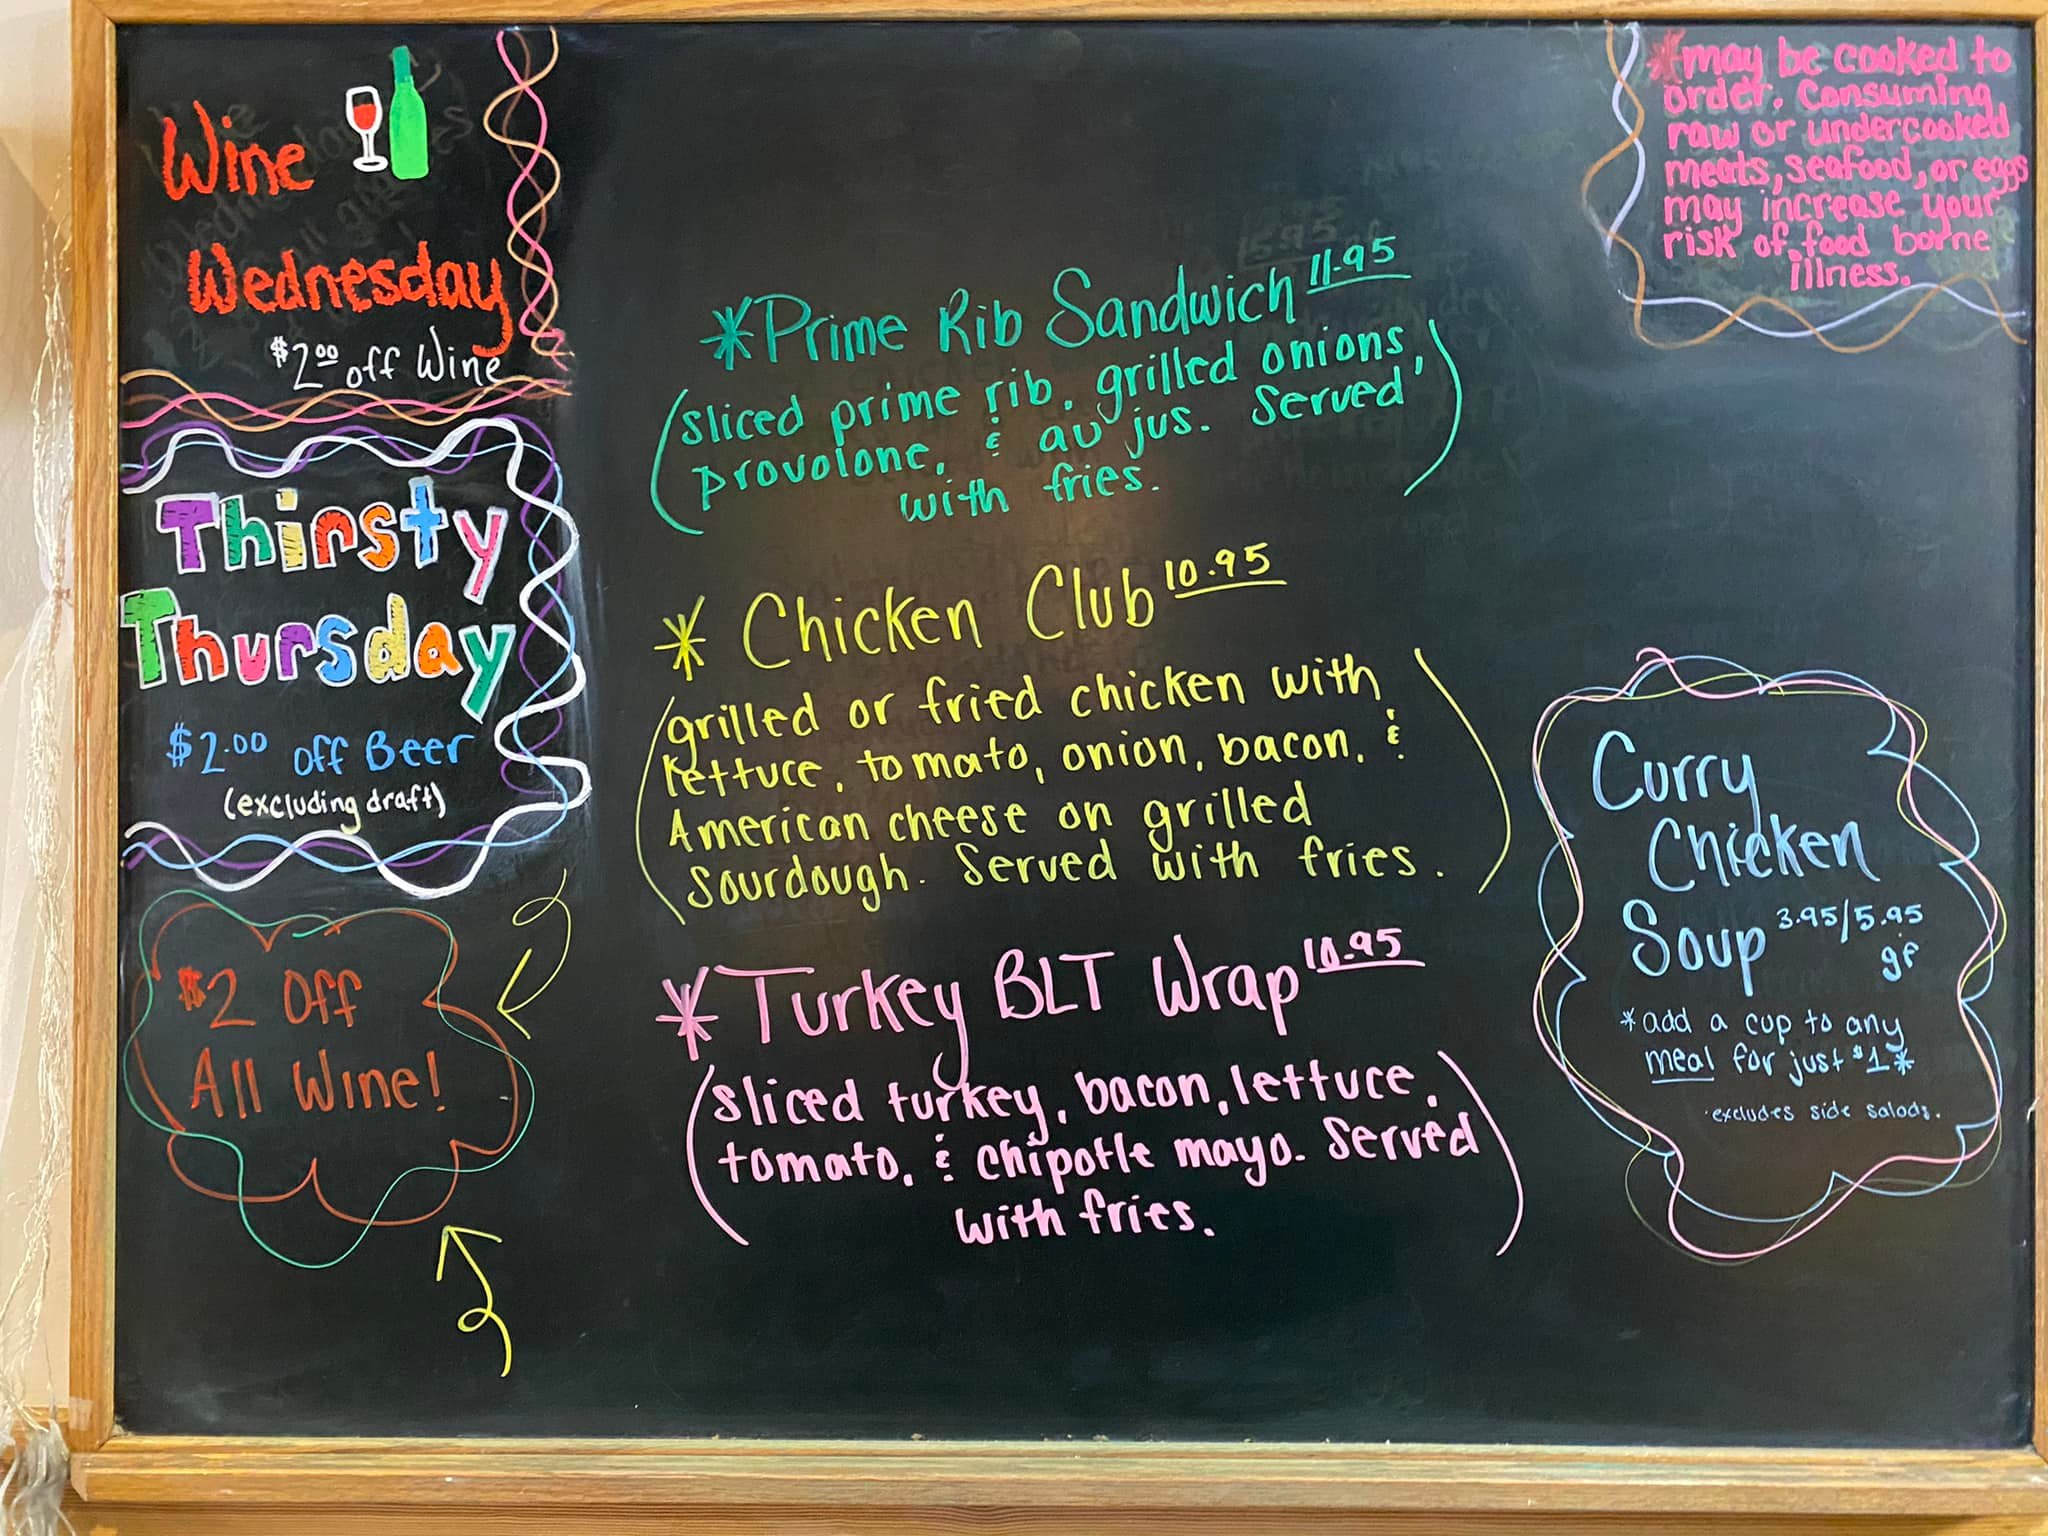 Wine
Wednesday
$2.00 off Wine
Thirsty
Thursday
$2.00 off Beer
(excluding draft)
$2 Off
All Wine!
*Prime Rib Sandwich 11.95
(sliced prime rib, grilled onions,
provolone, & au jus. Served
with fries.)
* Chicken Club 10.95
(grilled or fried chicken with
lettuce, tomato, onion, bacon, &
American cheese on grilled
Sourdough. Served with fries.)
*Turkey BLT Wrap 10.95
(sliced turkey, bacon, lettuce,
tomato, & chipotle mayo. Served
with fries.)
*may be cooked to
order. Consuming
raw or undercooked
meats, seafood, or eggs
may increase your
risk of food borne
illness.
Curry
Chicken
Soup 3.95/5.95
gf
*add a cup to any
meal for just $1*
·excludes side salads.